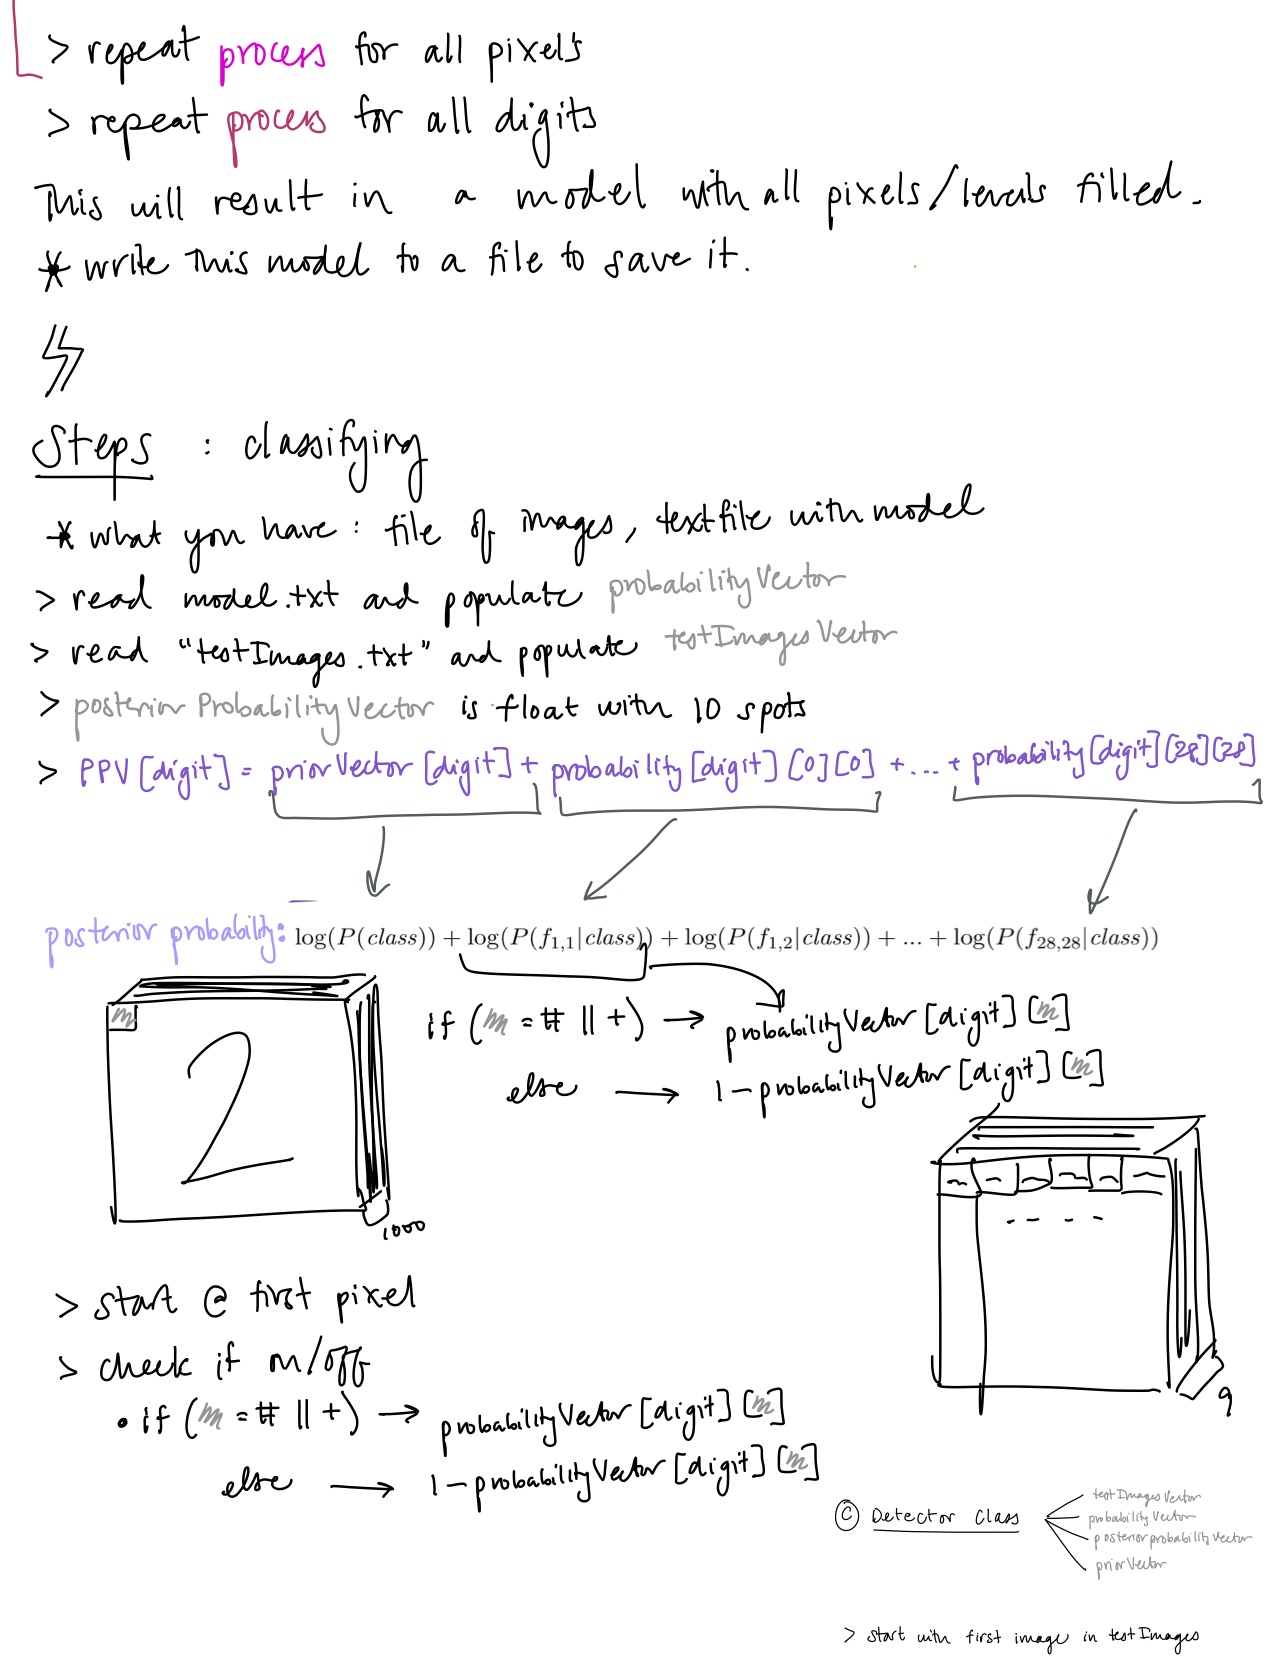 > repeat process for all pixels
> repeat process for all digits
This will result in a model with all pixels/levels filled.
* write this model to a file to save it.
Steps : classifying
* what you have : file of images, textfile with model
> read model.txt and populate probabilityVector
> read "testImages.txt" and populate testImagesVector
> posteriorProbabilityVector is float with 10 spots
> PPV[digit] = priorVector[digit] + probability[digit][0][0] + ... + probability[digit][28][28]
posterior probability: log(P(class)) + log(P(f1,1|class)) + log(P(f1,2|class)) + ... + log(P(f28,28|class))
m
2
1000
if (m = # || +) → probabilityVector[digit][m]
else → 1 - probabilityVector[digit][m]
9
> start @ first pixel
> check if on/off
• if (m = # || +) → probabilityVector[digit][m]
else → 1 - probabilityVector[digit][m]
© Detector Class
testImagesVector
probabilityVector
posteriorprobabilityVector
priorVector
> start with first image in testImages